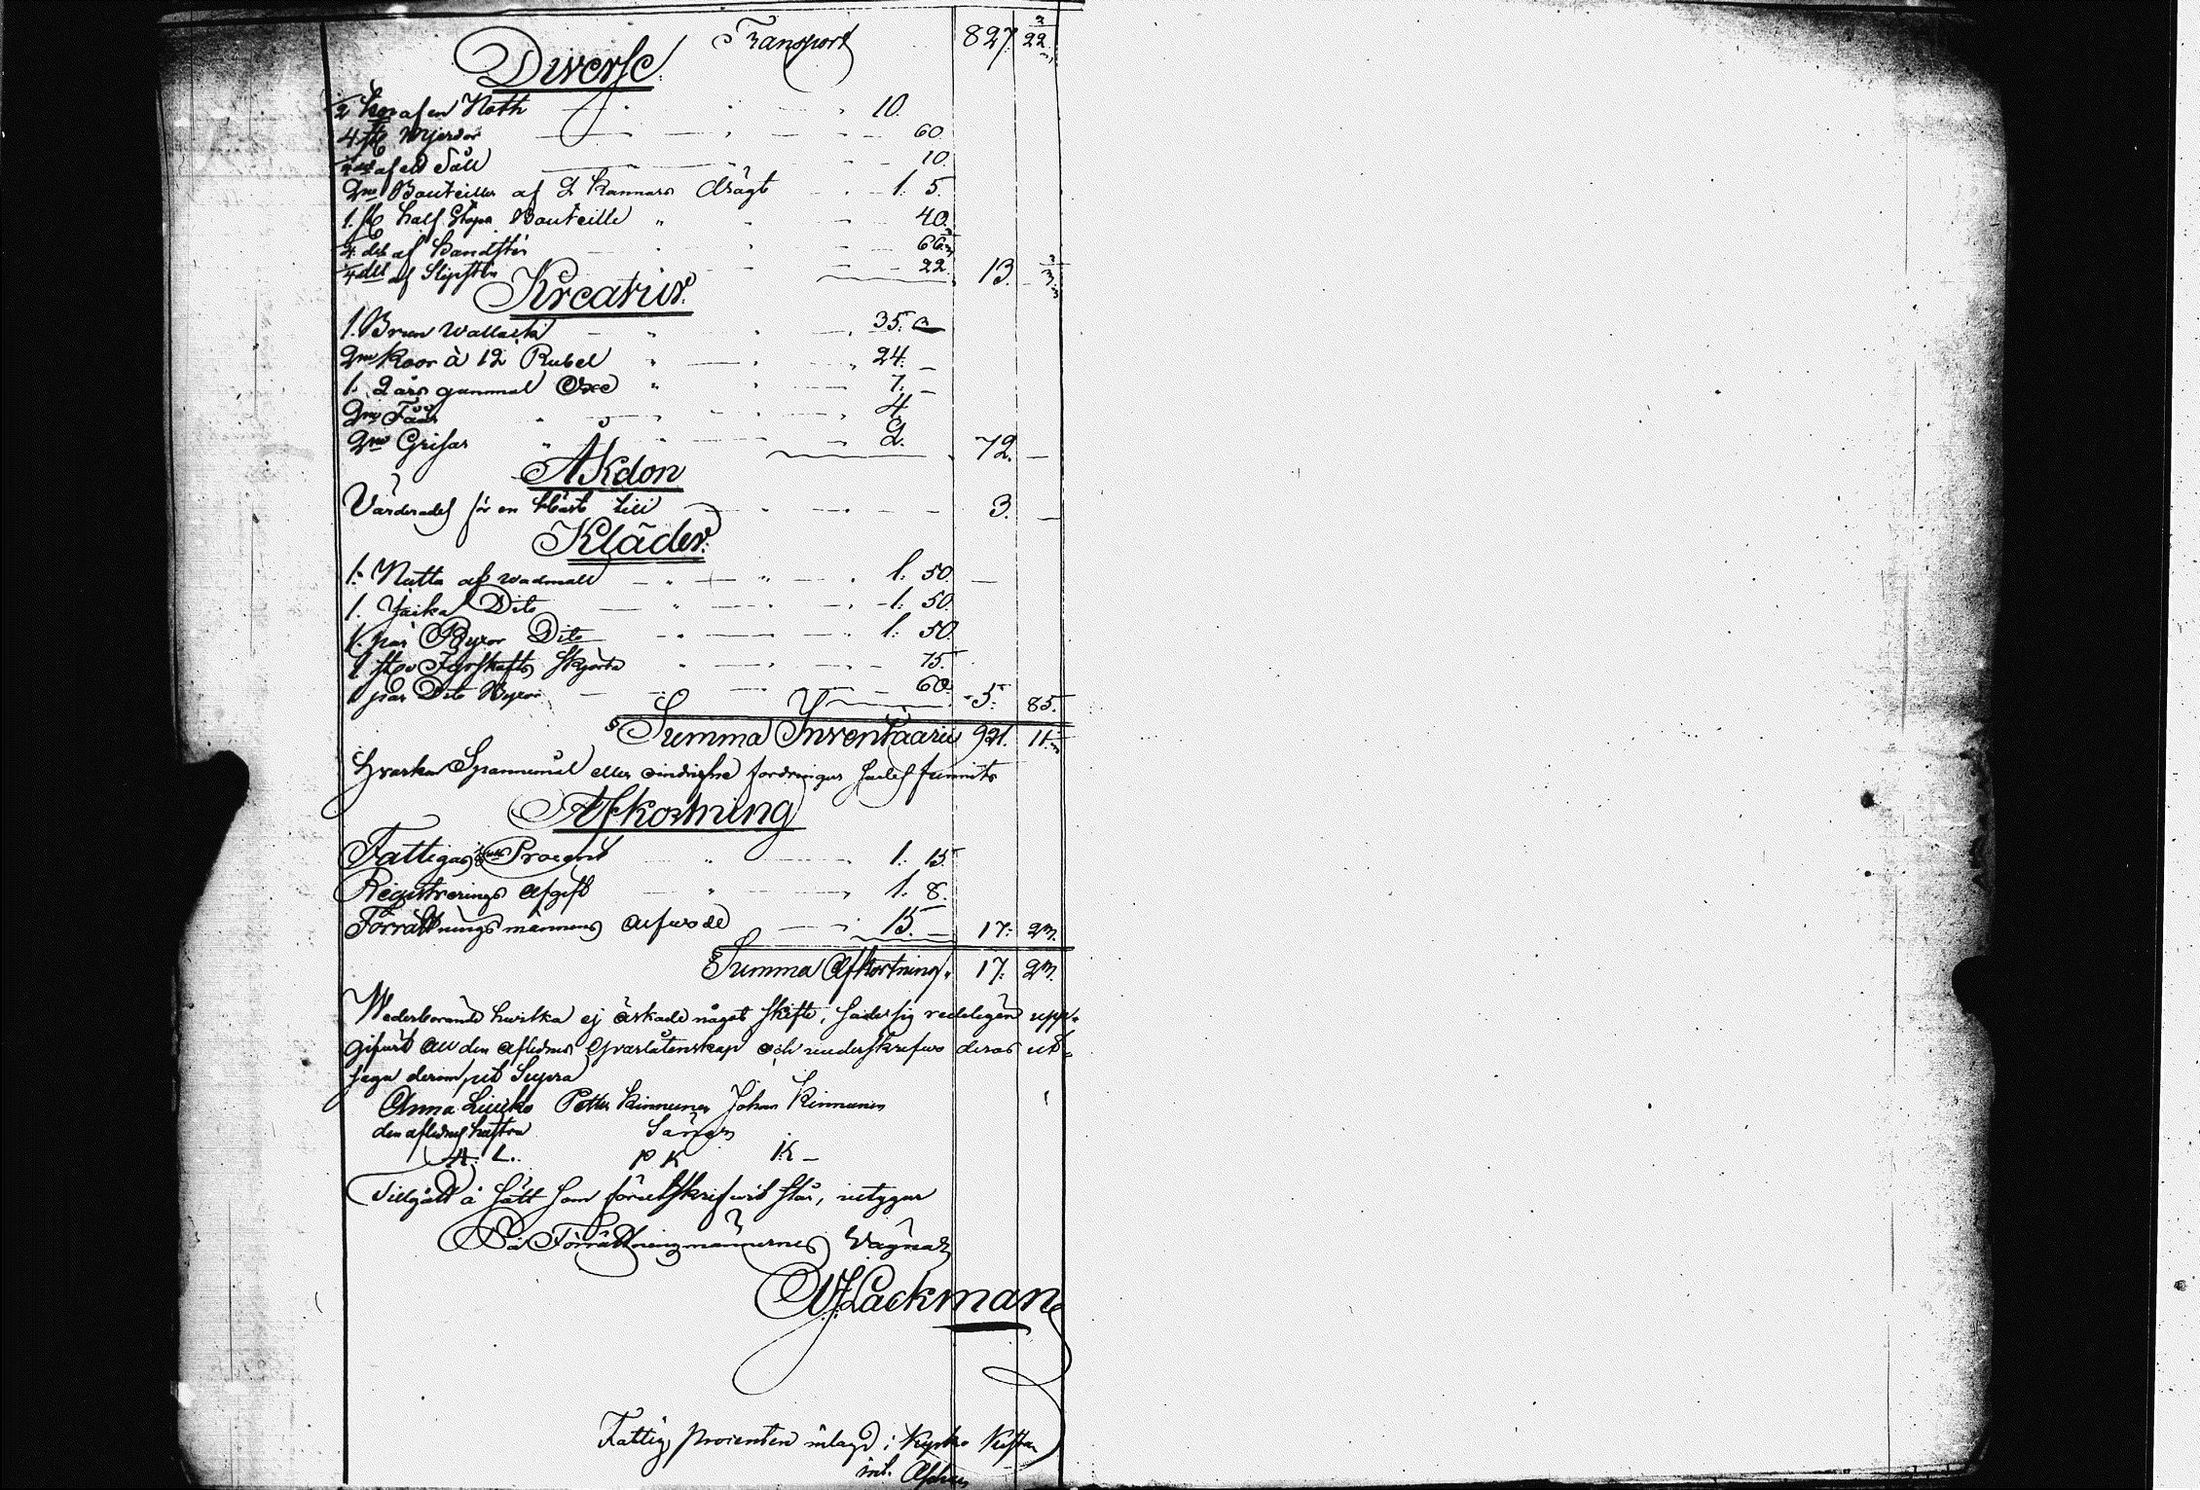 Transport 827 22
Diverse
af en Noth 10.
4 st 60.
del af ett Såll 10.
2ne Bouteiller af 2 Kannars drägt 1. 5.
1. st half Stops Bouteille 40.
1/4 del af Handsten 66.
1/4 del af Slipsten 22. 13.
Kreatur.
1. Brun Wallack 35.
2ne Koor à 12 Rubel 24. –
1. 2 års gammal Oxe 7. –
2ne Får 4.
2ne Grisar 2. 72. –
Åkdon
Värderades för en Häst till 3. –
Kläder.
1. af wadmall 1. 50. –
1. Jacka Dito 1. 50.
1. par Byxor Dito 1. 50.
1 Fyrskafts Skjorta 75.
1 par Dito Byxor 60. 5. 85.
Summa Inventarii 921. 11.
Hvarken Spannemål eller fordringar funnits
Afkortning
Fattigas Procent 1. 15.
Registrerings afgift 1. 8.
Förrättningsmännens arfvode 15. – 17. 23.
Summa Afkortning. 17. 23.
Wederborande hwilka ej äskade något Skifte, sig redeligen upp-
gifvit all den aflednes qvarlåtenskap och underskrefvo deras ut-
saga derom, ut Supra
Anna Petter Kinnunen Johan Kinnunen
den aflednes Söner
A. L. P K IK –
Tillgått å sätt som förutskrifwit står, intygar
På Förrättningsmännernes Vägnar
Lackman
Fattig procenten inlagd i Kyrko Kistan